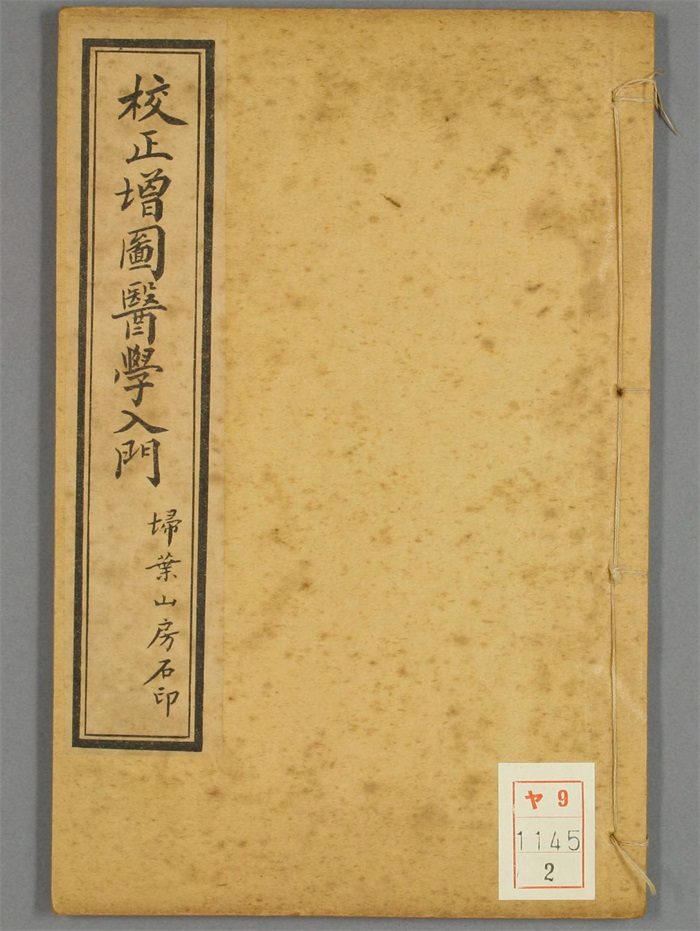 校正增圖醫學入門
埽葉山房石印
ヤ 9
1145
2